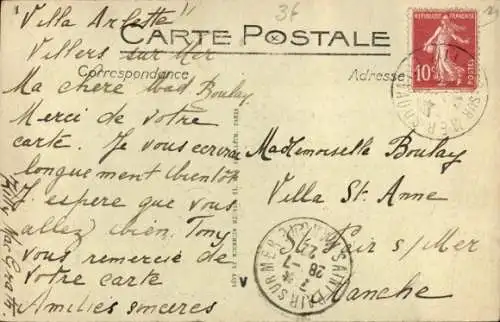 36
Villa Arlette
Villers sur Mer
CARTE POSTALE
Correspondance
Adresse
RÉPUBLIQUE FRANÇAISE
10c
POSTES
Ma chere Mad Boulay
Merci de votre
carte. Je vous ecrirai
longuement bientot
J'espere que vous
allez bien. Tony
vous remercie de
votre carte
Amities sinceres
Mademoiselle Boulay
Villa St. Anne
St. Pair s/Mer
Manche
SAINT PAIR SUR MER
28 -7
22